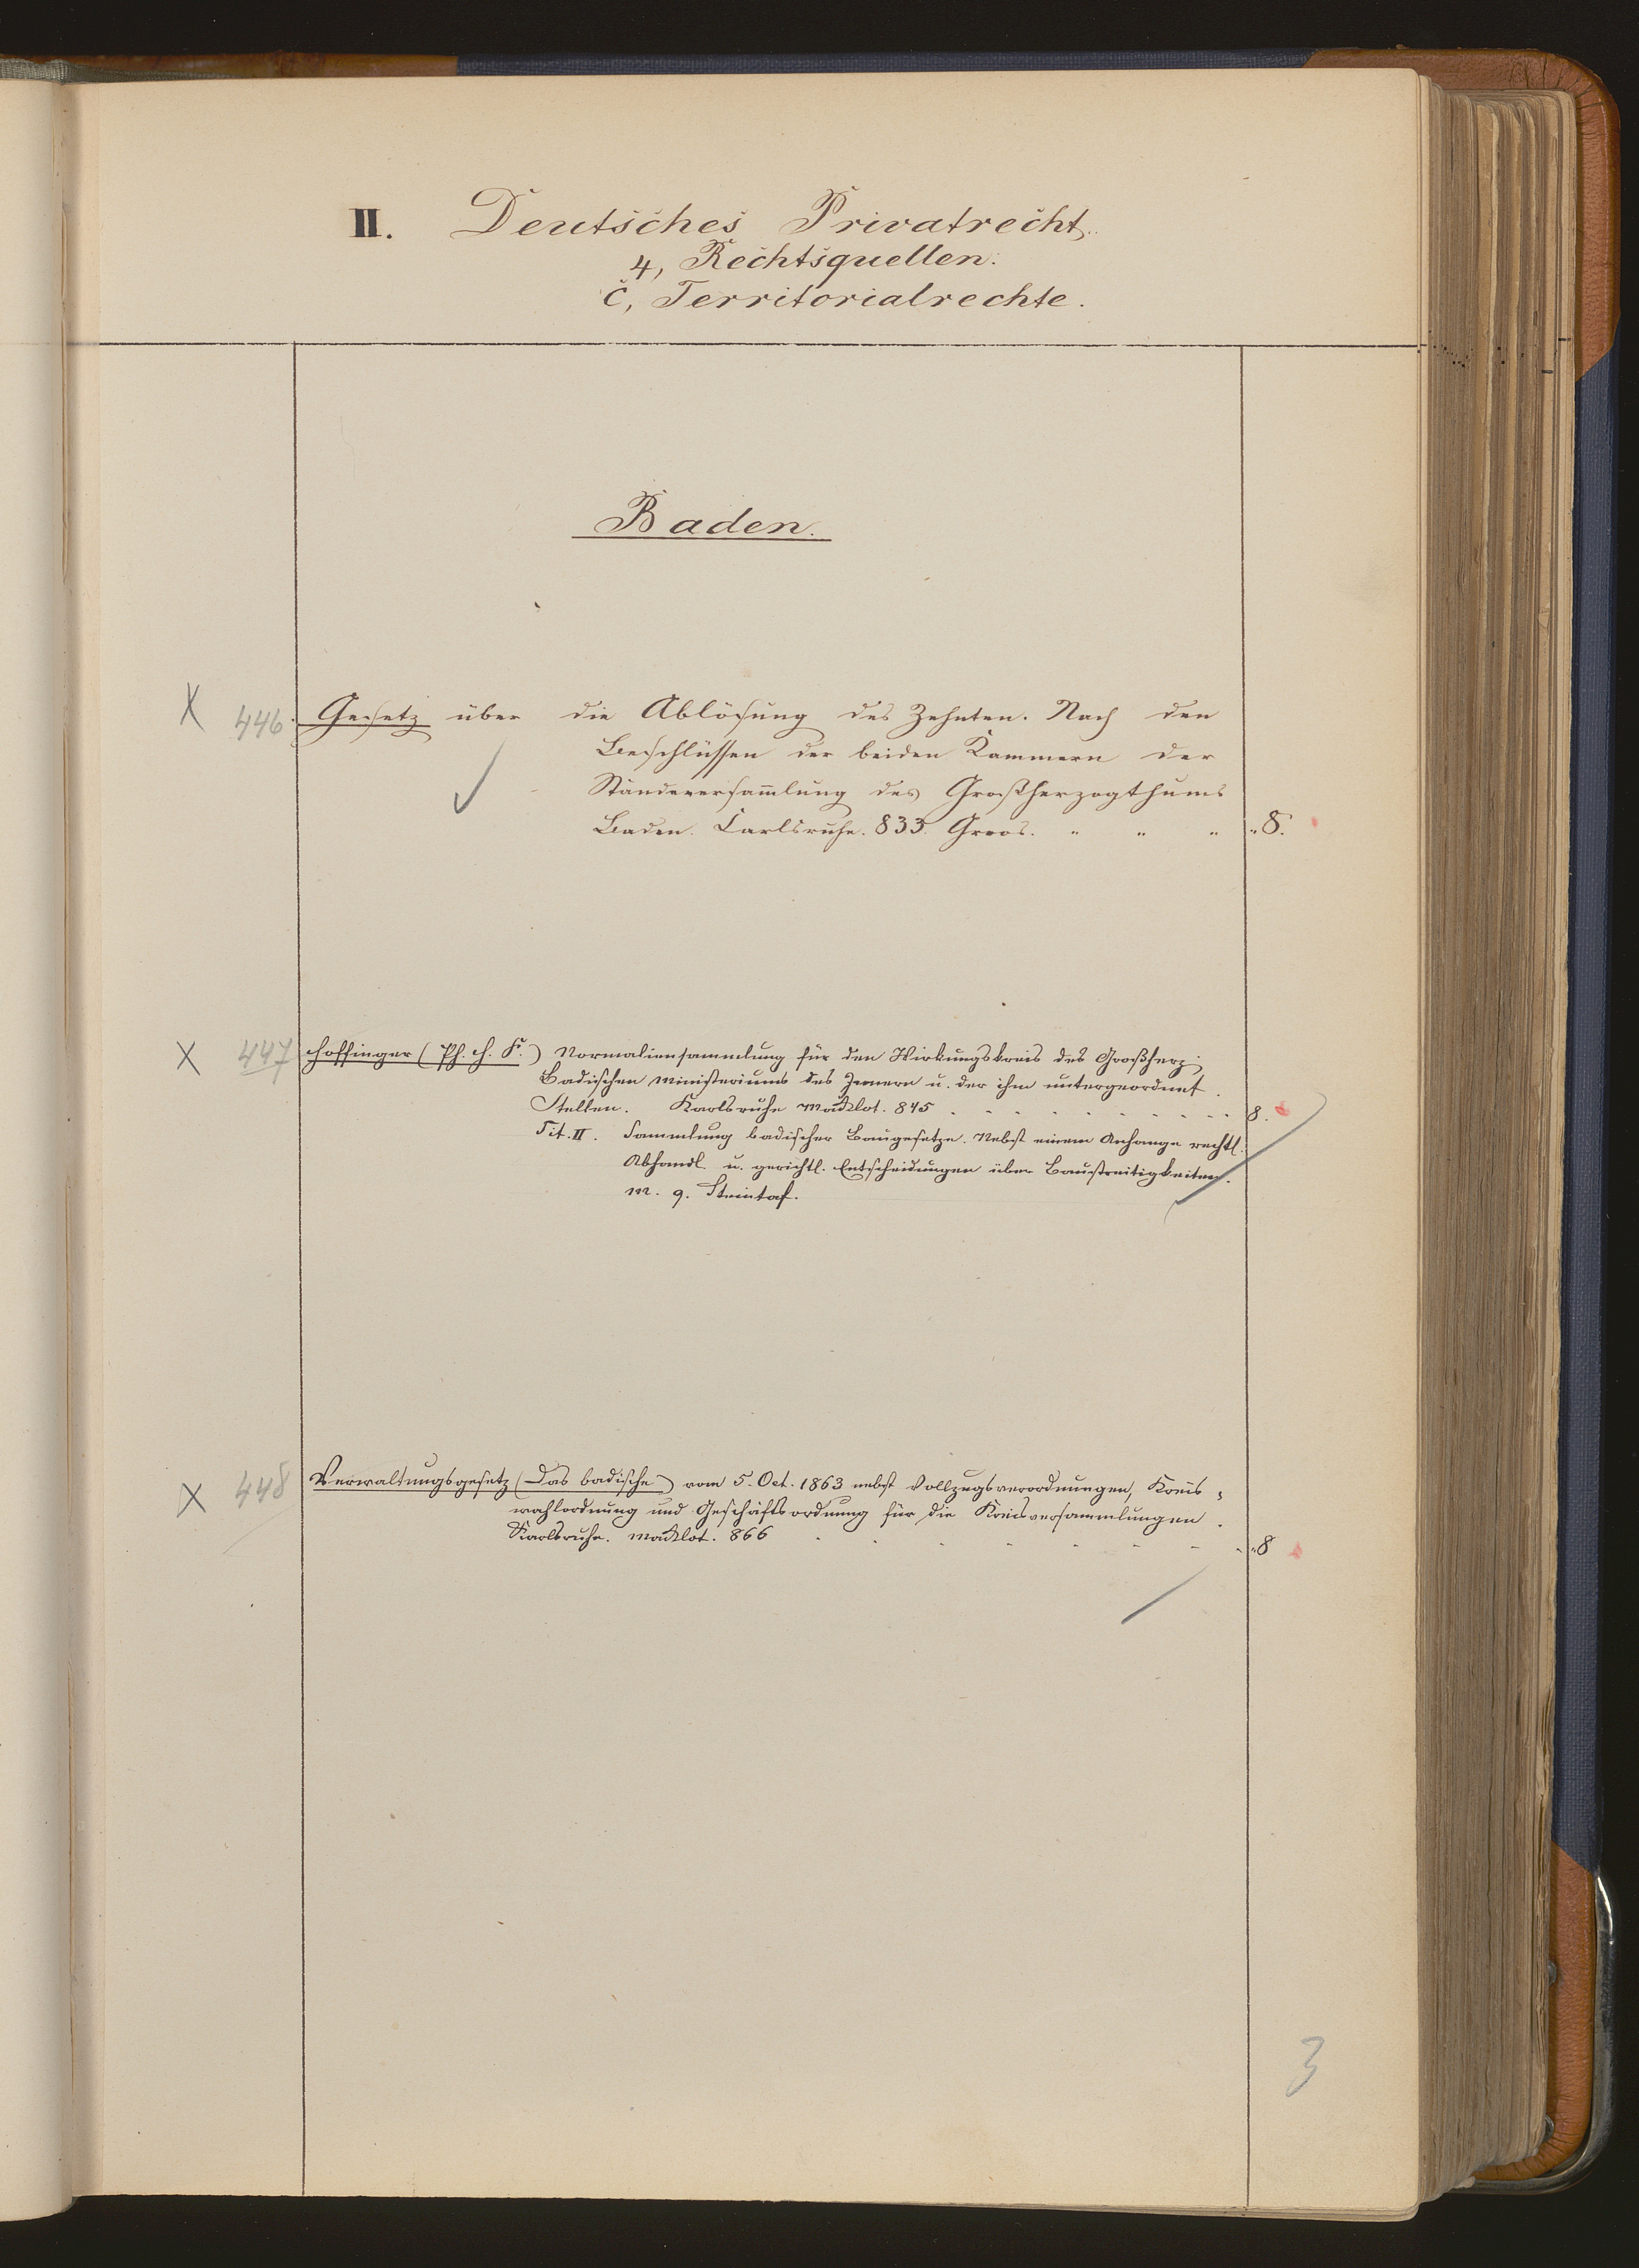 II. Deutsches Privatrecht.
4, Rechtsquellen.
c, Territorialrechte.
Baden.
X 446. Gesetz über die Ablösung des Zehnten. Nach den
Beschlüssen der beiden Kammern der
Ständeversam̄lung des Großherzogthums
Baden. Carlsruhe. 833. Groos. " " " " 8.
X 447 Hoffinger (Ph. H. F.) Normaliensammlung für den Wirkungskreis des Großherz.
Badischen Ministeriums des Innern u. der ihm untergeordnet.
Stellen. Karlsruhe Macklot. 845 8.
Tit. II. Sammlung badischer Baugesetze. Nebst einem Anhange rechtl.
Abhandl. u. gerichtl. Entscheidungen über Baustreitigkeiten.
M. 9. Steintaf.
X 448 Verwaltungsgesetz (Das badische) vom 5. Oct. 1863 nebst Vollzugsverordnungen, Kreis-
wahlordnung und Geschäftsordnung für die Kreisversammlungen.
Karlsruhe. Macklot. 866 " 8
3